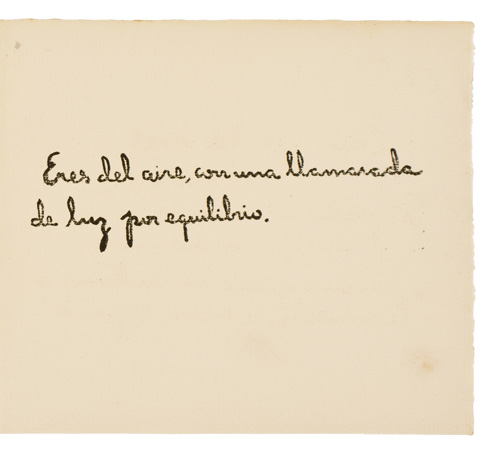 Eres del aire, con una llamarada
de luz por equilibrio.